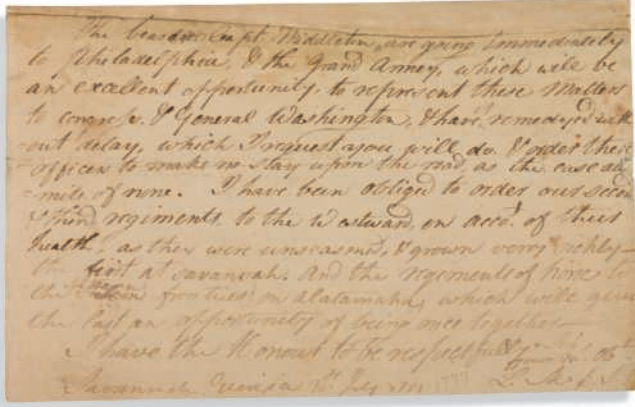 The bearer Capt. Middleton, are going immediately
to Philadelphia, & the Grand Armey, which will be
an excellent opportunity, to represent these Matters
to congress. & General Washington, & have remedeyd with
out delay, which I request you will do. & order these
officers to make no stay upon the road, as the case ad
=mits of none. I have been obliged to order our second
& third regiments, to the Westward, on acct. of their
health. as they were unseasoned, & grown verry sickly
the first at savannah. And the regements of horse to
the frontiers on alatamaha, which will give
the last an opportunity of being once together
I have the Honour to be respectfully
Savannah July